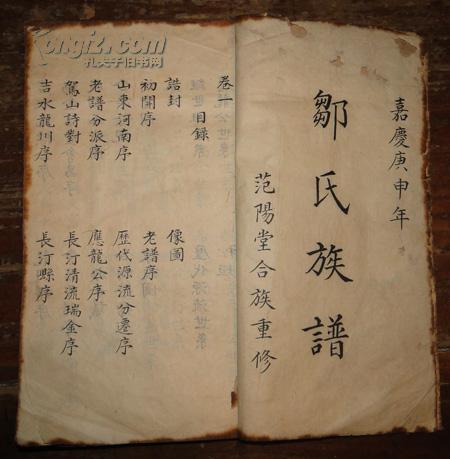 嘉慶庚申年
鄒氏族譜
范陽堂合族重修
目錄
誥封 像圖
初開序 老譜序
山東河南序 歷代源流分遷序
老譜分派序 應龍公序
駕山詩對 長汀清流瑞金序
吉水龍川序 長汀縣序
kongfz.com
孔夫子旧书网